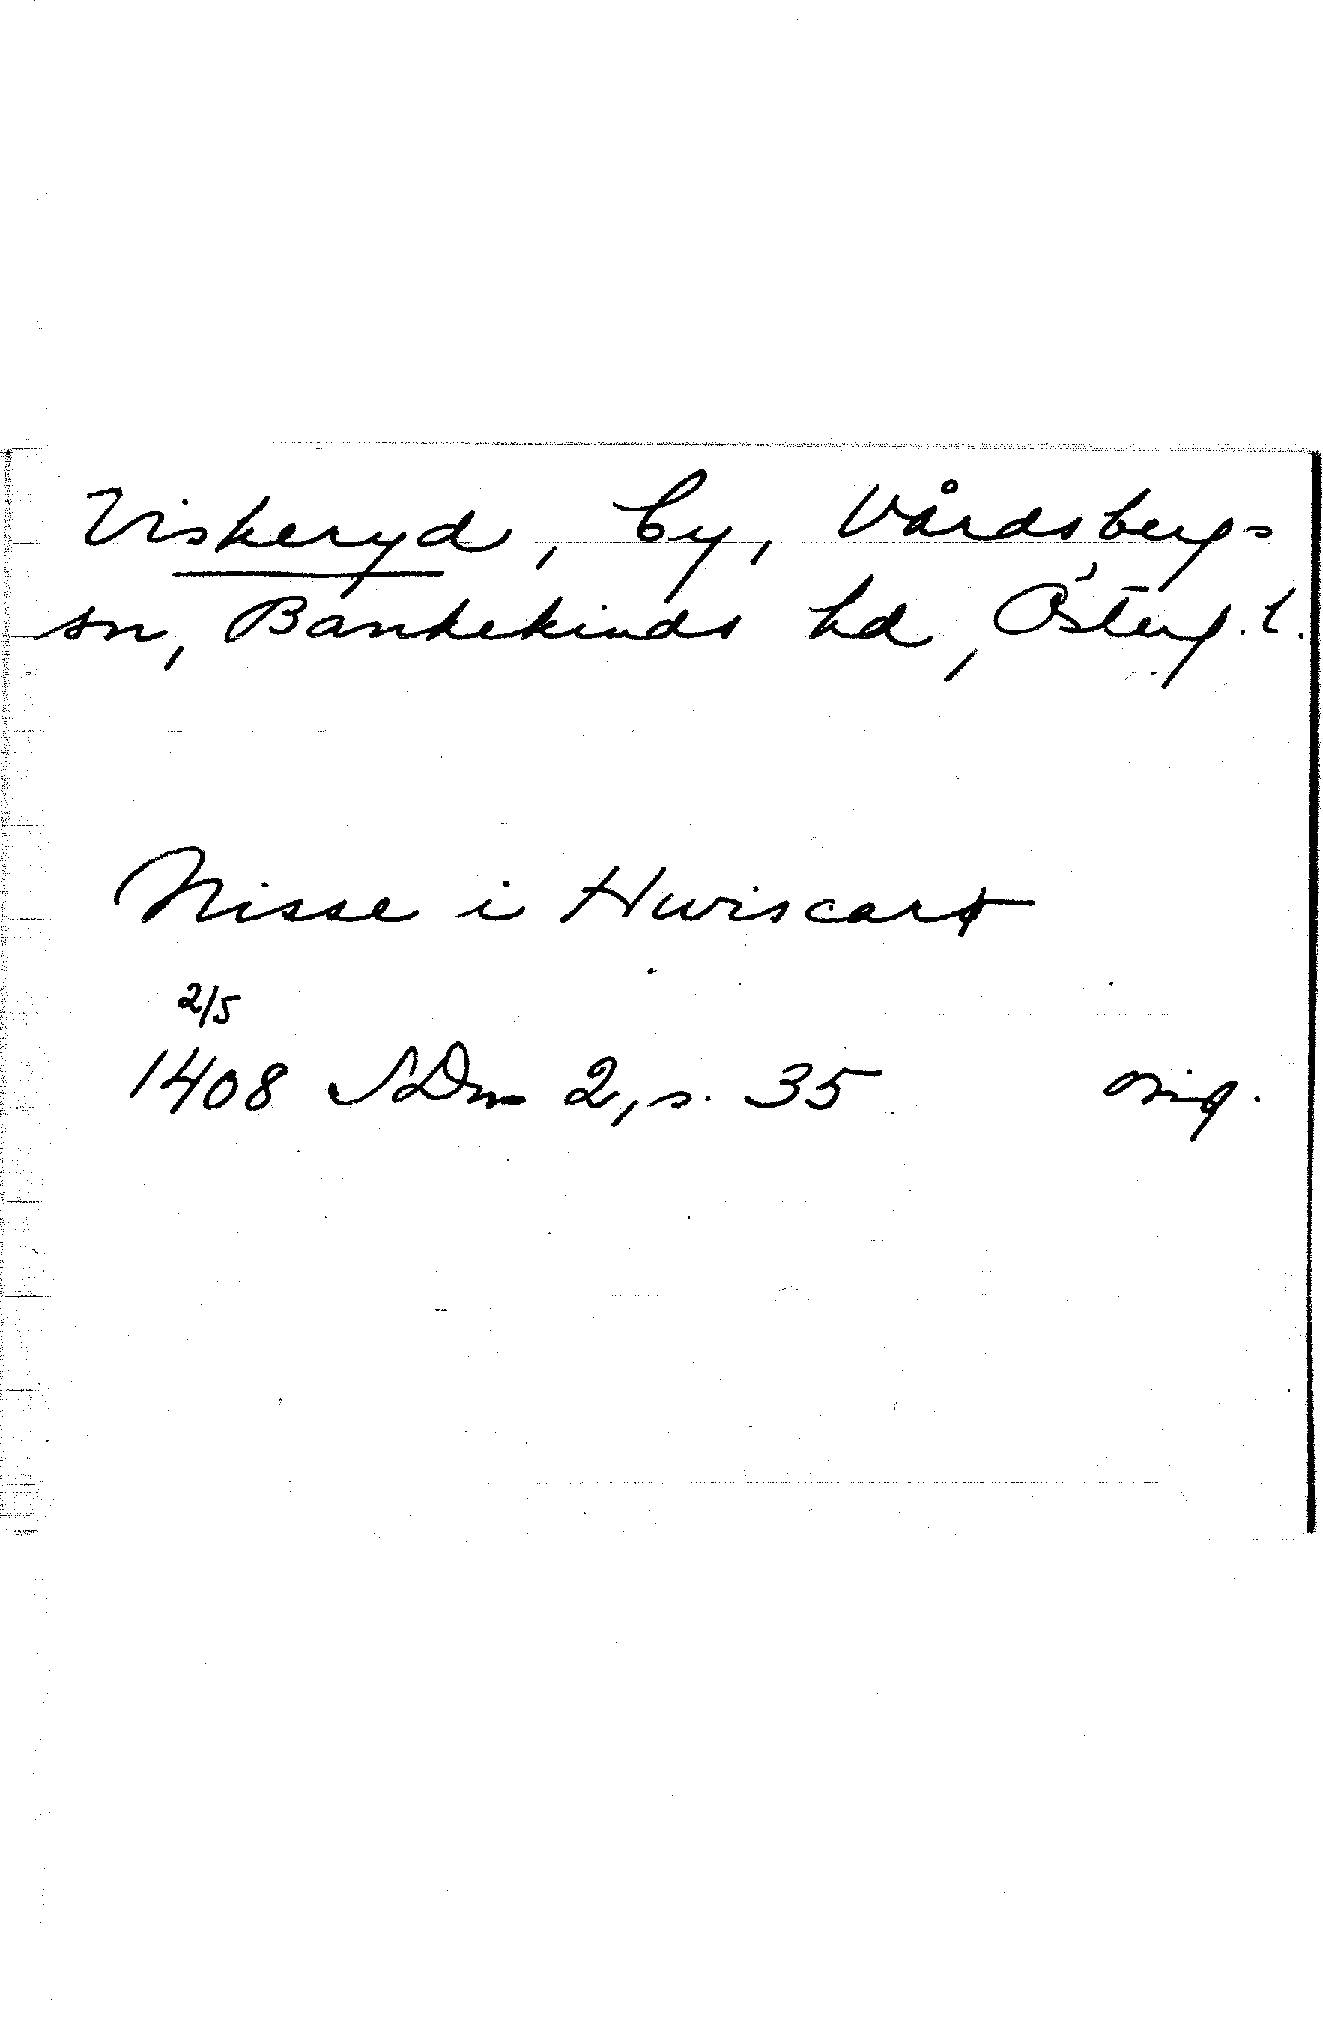 Viskeryd, by, Vårdsbergs
sn, Bankekinds hd, Österg. l.
Nisse i Hwiscart
2/5
1408 SDm 2, s. 35 orig.